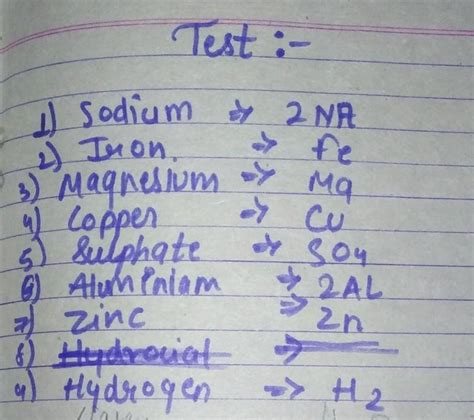 Test :-
1) Sodium → 2NA
2) Iron. → fe
3) Magnesium → Mg
4) Copper → Cu
5) Sulphate → SO4
6) Aluminiam → 2AL
7) Zinc → Zn
8) Hydrocial →
9) Hydrogen → H2